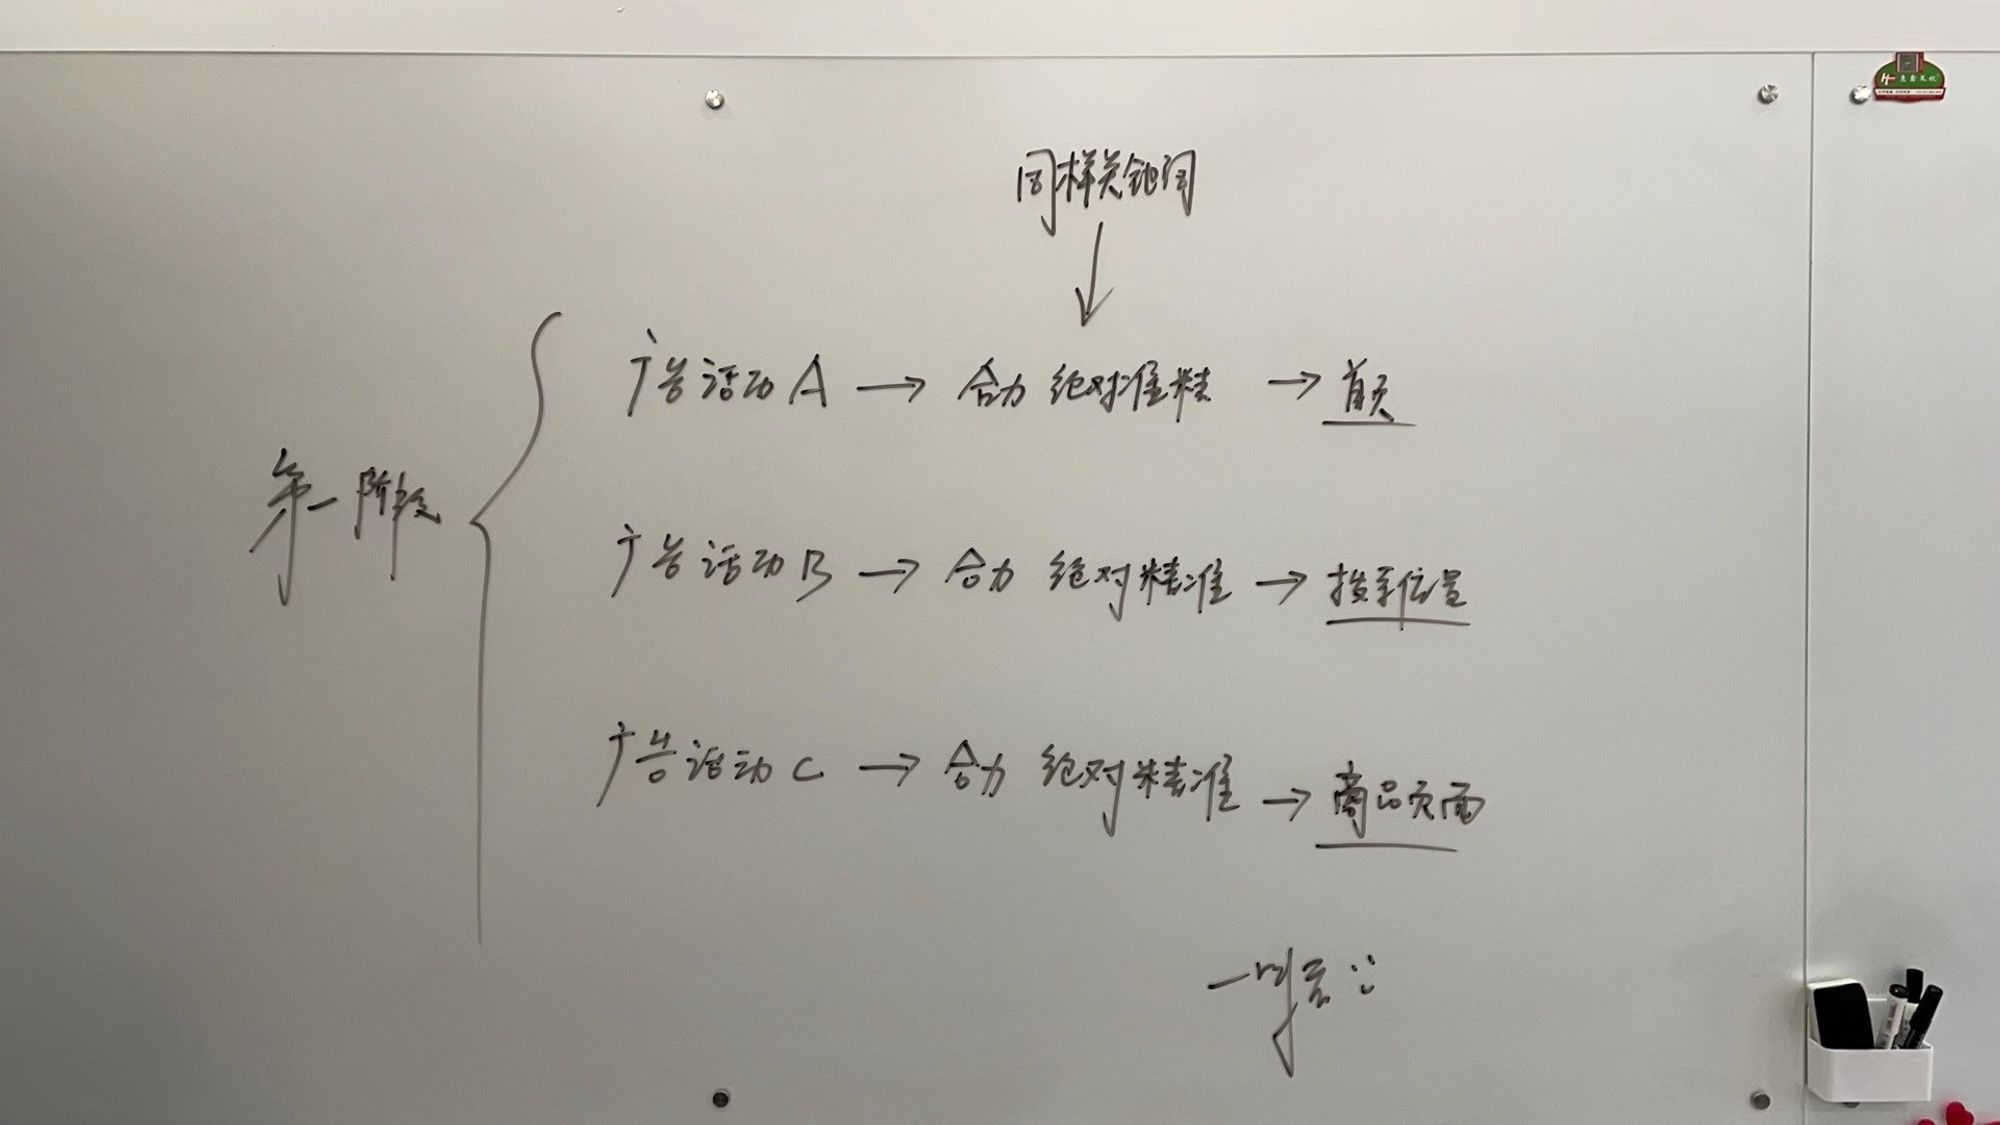 同样关键词
第一阶段
广告活动A → 合力 绝对准精 → 首页
广告活动B → 合力 绝对精准 → 搜索位置
广告活动C → 合力 绝对精准 → 商品页面